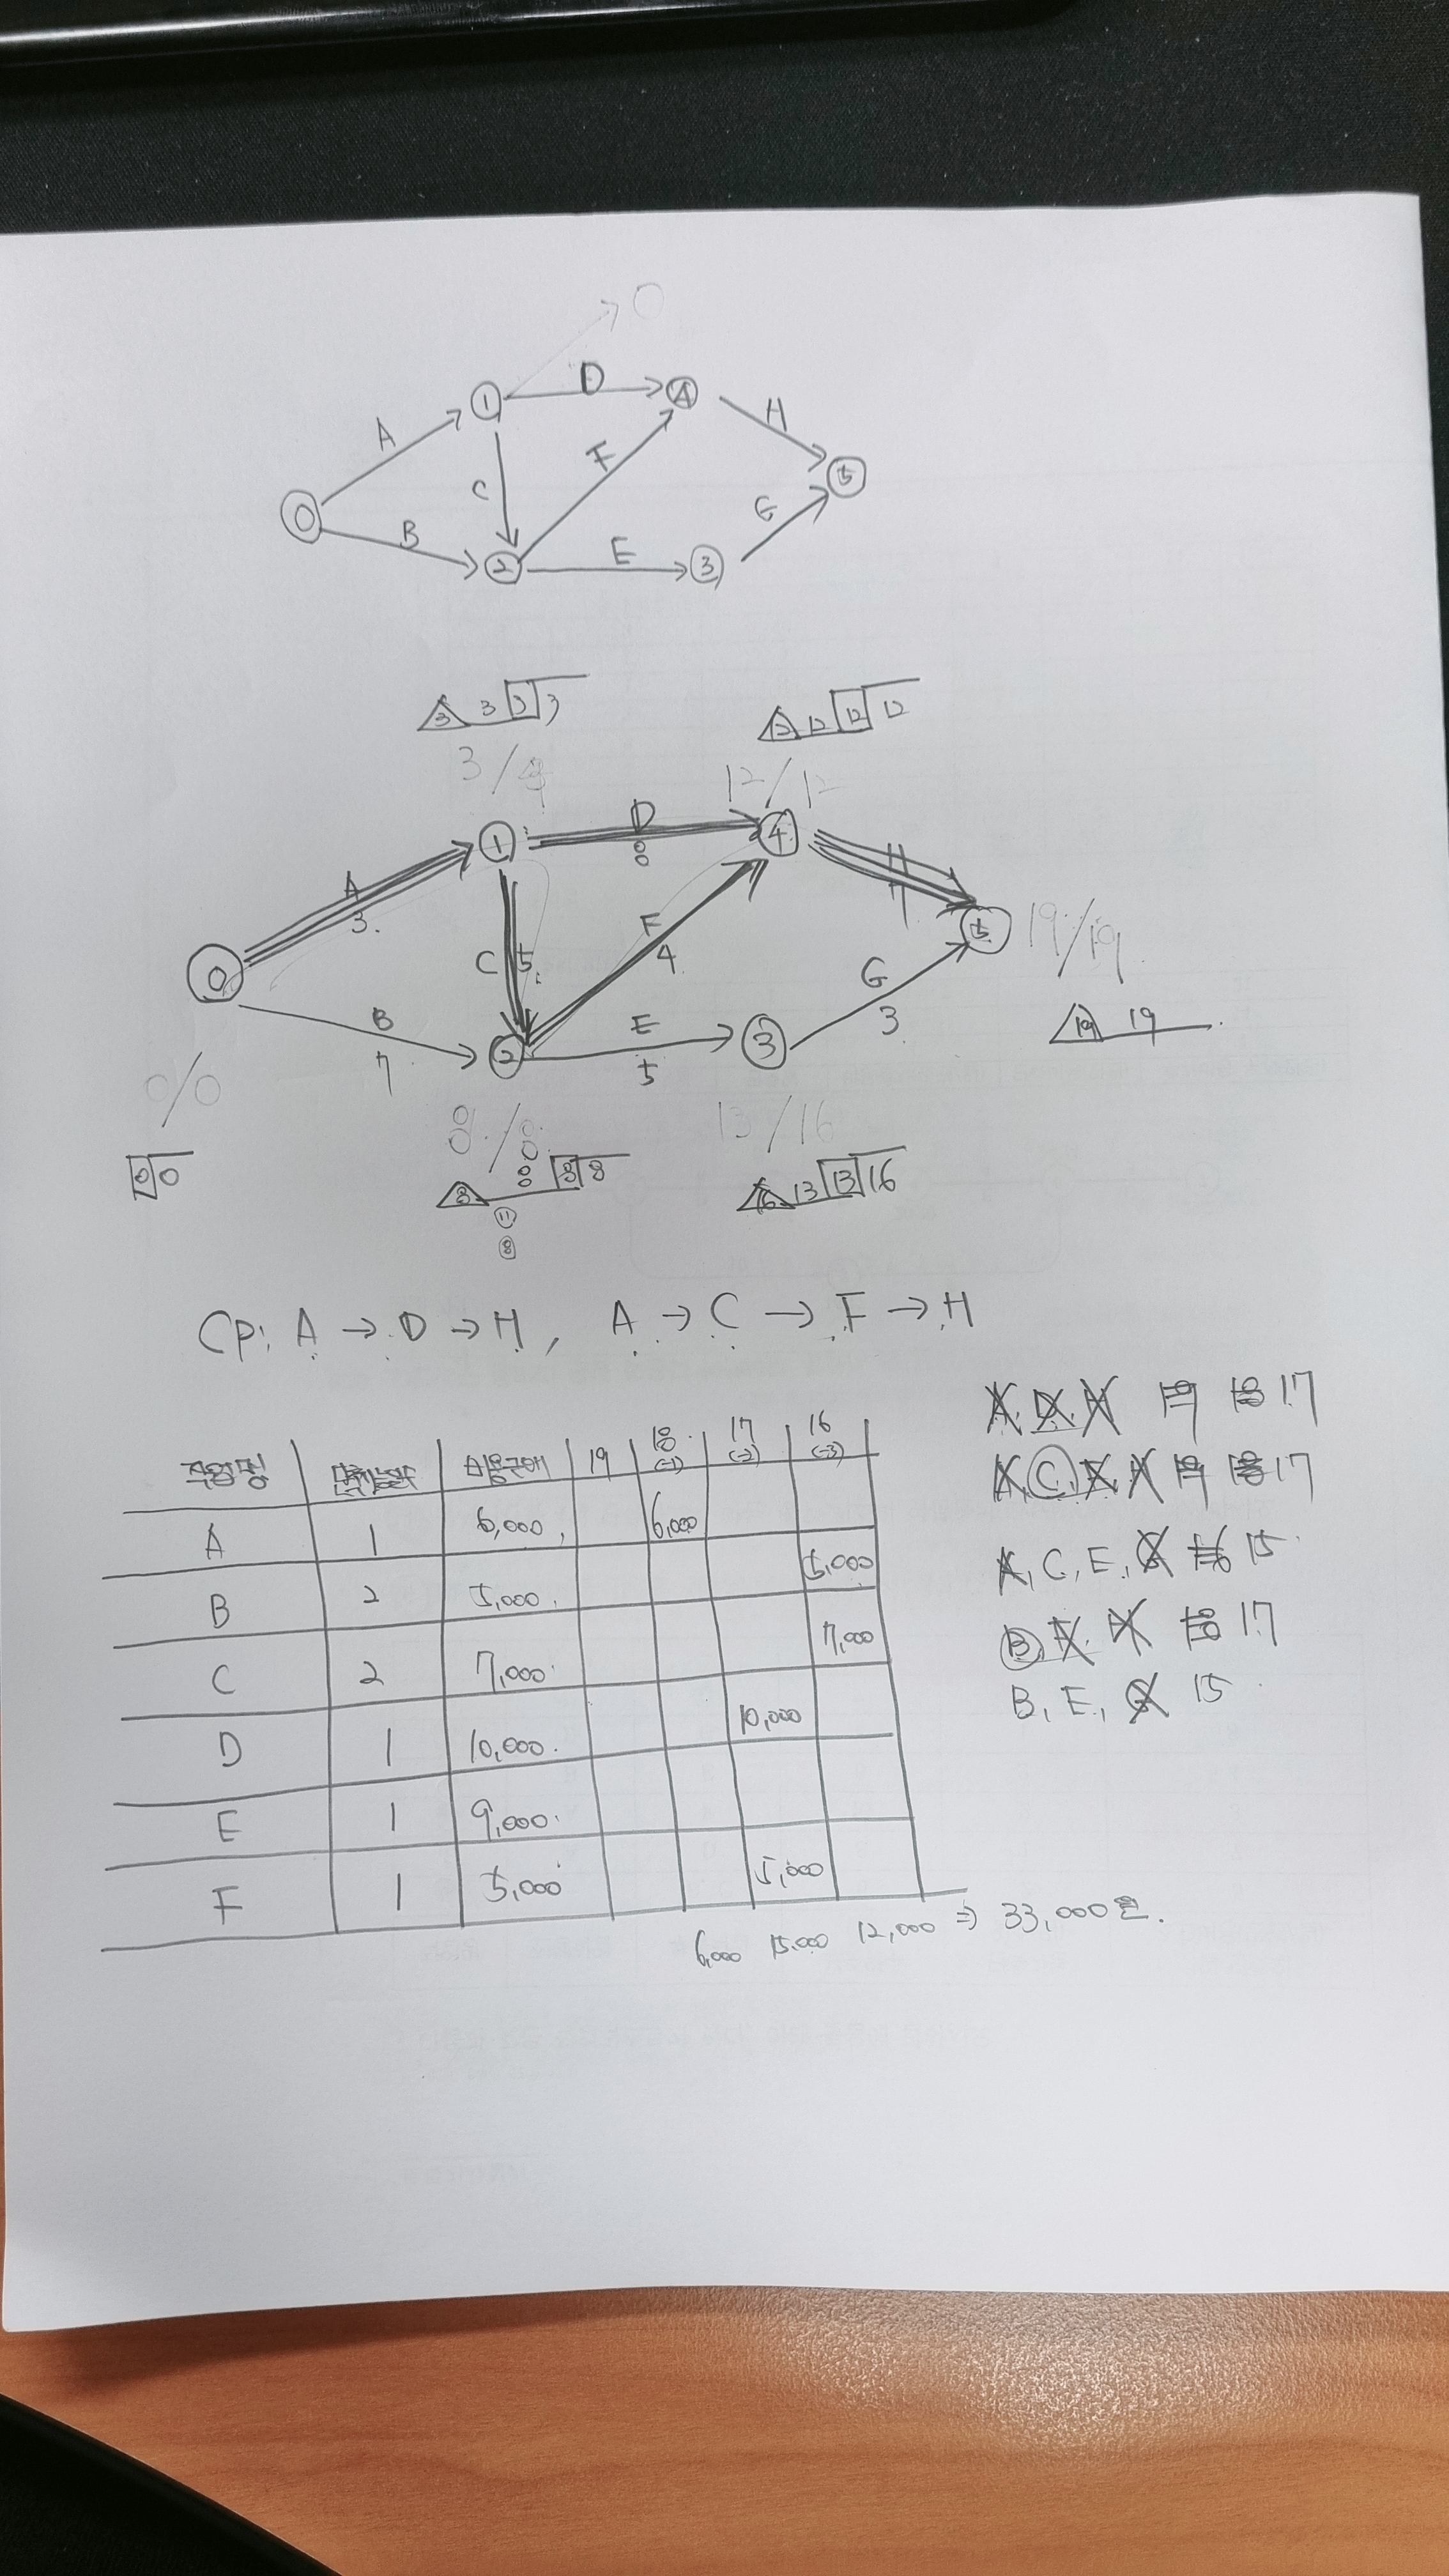 D
A
1
4
H
C
F
5
0
G
B
2
E
3
3 3 3
12 12 12 12
3/
12/12
D
8
1
4
H
7
A
3
F
4
5
19/19
C 5
0
G
3
19 19
B
7
2
E
5
3
0/0
8/8
13/16
0 0
8 8 8 8
16 13 13 16
11
8
CP: A → D → H, A → C → F → H
A, D, H 19 18 17
A, C, F, H 19 18 17
A, C, E, G 16 15
B, F, H 18 17
B, E, G 15
작업명 단축가능일수 비용구배 19 18 (-1) 17 (-2) 16 (-3)
A 1 6,000 6,000
B 2 5,000 5,000
C 2 7,000 7,000
D 1 10,000 10,000
E 1 9,000
F 1 5,000 5,000
6,000 15,000 12,000 ⇒ 33,000원.